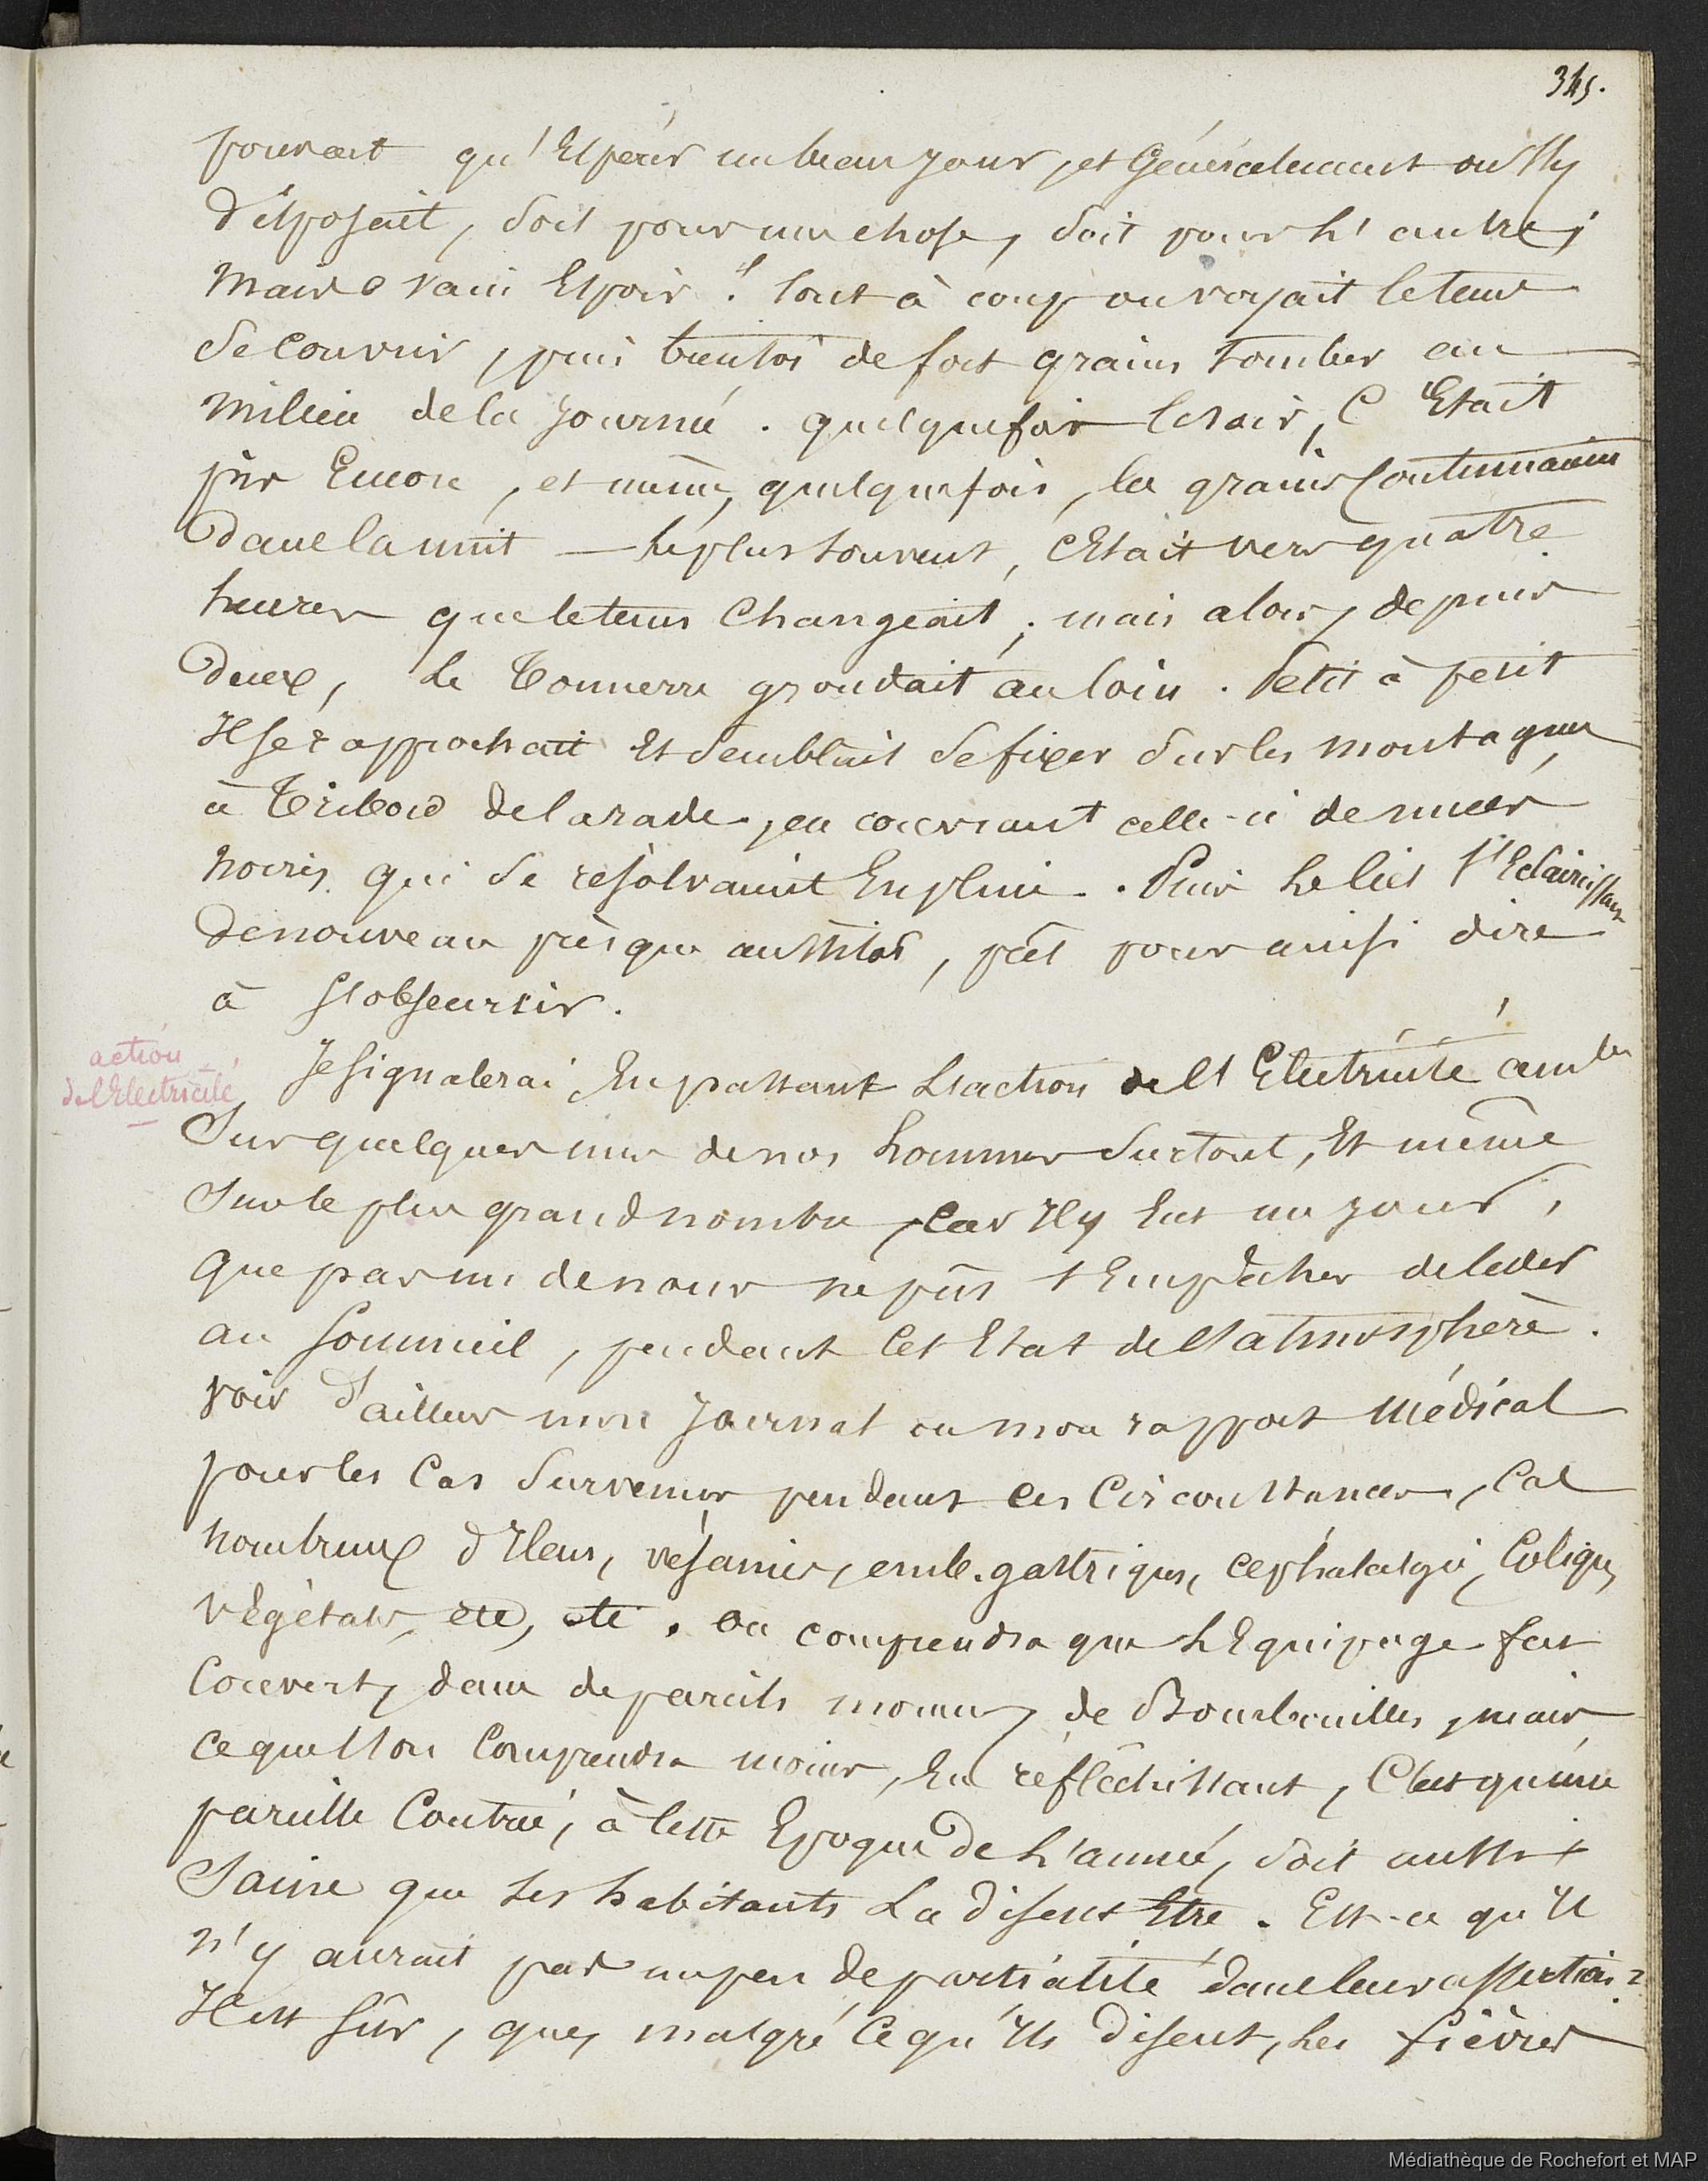 345.
pouvait qu'Espérer un beau jour, et Généralement on s'y
disposait, soit pour une chose, soit pour l'autre;
Mais vain Espoir! tout à coup on voyait le tems
se couvrir, puis bientôt de fort grains tomber au
milieu de la journée. quelquefois le soir, C'Etait
pis Encore, et même, quelquefois, les grains Continuaient
dans la nuit — le plus souvent, c'Etait vers quatre
heures que le tems Changeait; mais alors, depuis
deux, le Tonnerre grondait au loin. Petit à petit
Il se rapprochait Et semblait se fixer sur les montagnes
à Tribord de la rade, en couvrant celle-ci de nuées
noires qui se résolvaient En pluie. Puis le Ciel s'Eclaircissait
de nouveau presque aussitôt, prêt pour ainsi dire
à s'obscurcir.
action
de l'Electricité
Je signalerai En passant L'action de l'Electricité ambte
Sur quelques uns de nos hommes surtout, Et même
Sur le plus grand nombre, Car Il y Eut un jour,
que pas un de nous ne pût s'Empêcher de Céder
au Sommeil, pendant Cet Etat de l'atmosphère.
voir d'ailleurs mon Journal ou mon rapport Médical
pour les Cas Survenus pendant ces Circonstances, Cas
nombreux d'Ileus, vésanies, emb. gastriques, céphalalgie, Coliques
végétales, etc, etc. on comprendra que l'Equipage fut
Couvert, dans de pareils momens, de Bourbouilles, mais
ce que l'on Comprendra moins, En réfléchissant, C'est qu'une
pareille Contrée, à Cette Epoque de l'année, soit aussi
Saine que les habitants La disent Etre. Est-ce qu'Il
n'y aurait pas un peu de partialité dans leur assertion?
Il est sûr, que, malgré Ce qu'Ils disent, les fièvres
Médiathèque de Rochefort et MAP